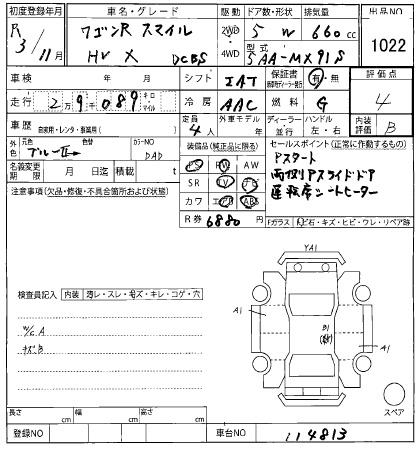 初度登録年月 車名・グレード 駆動 ドア数・形状 排気量 出品NO
R 3/11月 ワゴンR スマイル 2WD 5 W 660cc 1022
HV X DCBS 4WD 型式 5AA-MX91S
車検 年 月 シフト IAT 保証書 有・無 評価点
走行 2万9千089 キロ マイル 冷房 AAC 燃料 G 4
車歴 自家用・レンタ・事業用( ) 定員 4人 外車モデル 年 ディーラー 並行 ハンドル 左・右 内装 B
外色 元色 ブルーⅡ 色替 カラーNO DAD 装備品(純正品に限る) セールスポイント(正常に作動するもの)
名義変更期限 月 日迄 積載 t PS PW AW Pスタート
注意事項(欠品・修復・不具合箇所および状態) SR TV ナビ 両側Pスライドドア
カワ エアB ABS 運転席シートヒーター
R券 6880 円 Fガラス 飛石・キズ・ヒビ・ワレ・リペア跡
YA1
検査員記入 内装 汚レ・スレ・毛ズ・キレ・コゲ・穴
A1 A1
W/C A B1
キズB
スペア
長さ cm 幅 cm 高さ cm
登録NO 車台NO 114813